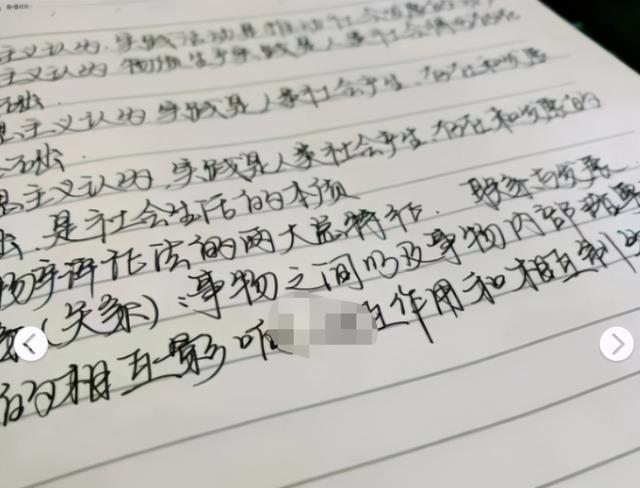 主义认为,实践活动是推动社会发展的
主义认为 物质生产实践是人类社会得以
主义认为 实践是人类社会产生、存在和发展
主义认为,实践是人类社会产生、存在和发展的
是社会生活的本质
物辩证法的两大总特征. 联系与发展
(关系):事物之间以及事物内部
的相互影响 互作用和相互制